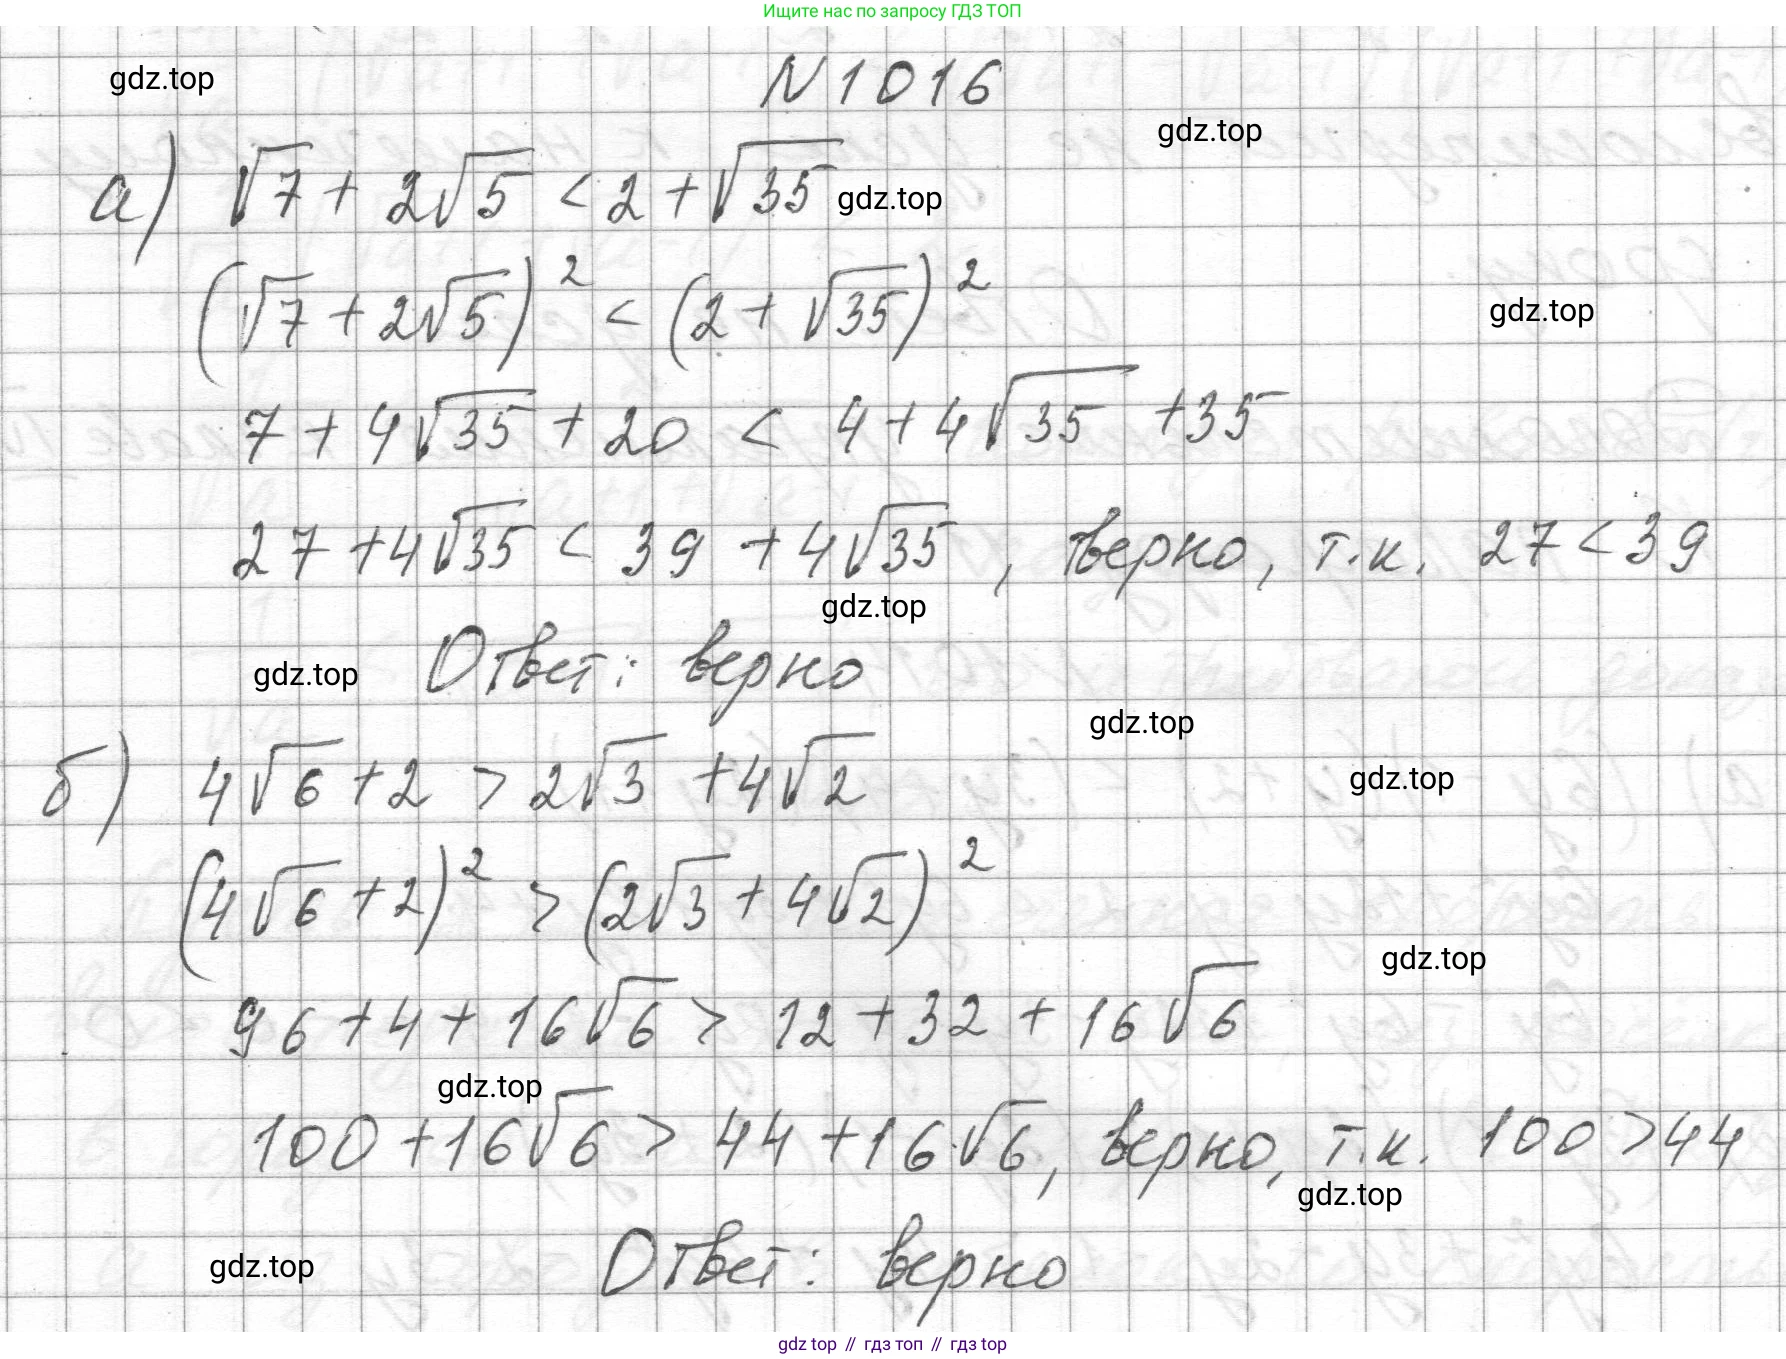 Ищите нас по запросу ГДЗ ТОП
gdz.top
N 1016
gdz.top
а) √7 + 2√5 < 2 + √35
gdz.top
(√7 + 2√5)² < (2 + √35)²
gdz.top
7 + 4√35 + 20 < 4 + 4√35 + 35
27 + 4√35 < 39 + 4√35, верно, т.к. 27 < 39
gdz.top
gdz.top
Ответ: верно
gdz.top
б) 4√6 + 2 > 2√3 + 4√2
gdz.top
(4√6 + 2)² > (2√3 + 4√2)²
gdz.top
96 + 4 + 16√6 > 12 + 32 + 16√6
gdz.top
100 + 16√6 > 44 + 16√6, верно, т.к. 100 > 44
gdz.top
gdz.top
Ответ: верно
gdz top // гдз топ // gdz top